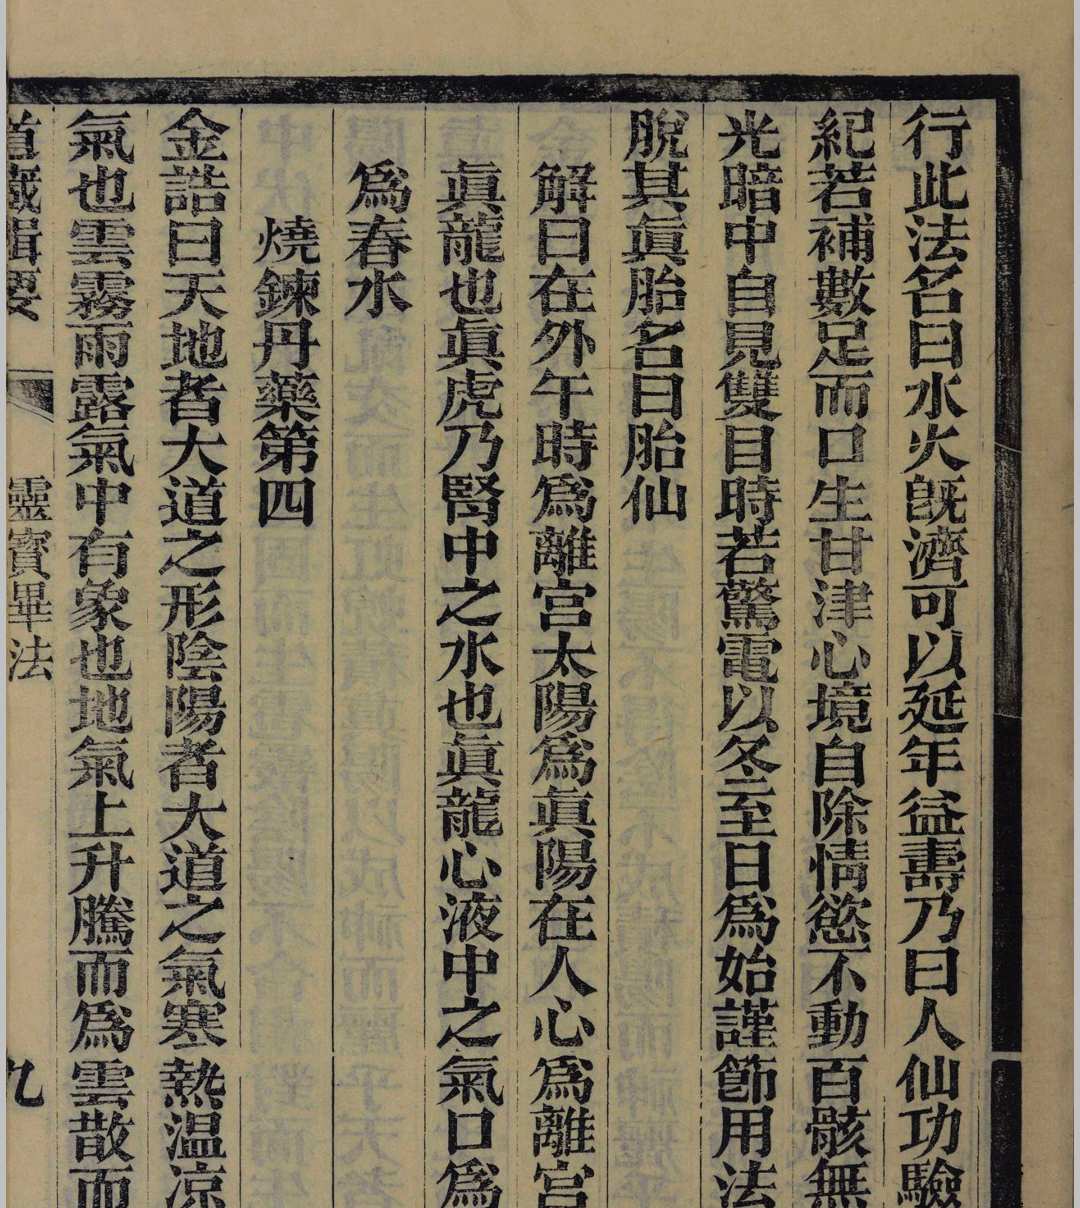 行此法名曰水火既濟可以延年益壽乃曰人仙功驗
紀若補數足而口生甘津心境自除情慾不動百骸無
光暗中自見雙目時若驚電以冬至日爲始謹節用法
脫其眞胎名曰胎仙
解曰在外午時爲離宮太陽爲眞陽在人心爲離宮
眞龍也眞虎乃腎中之水也眞龍心液中之氣口爲
爲春水
燒鍊丹藥第四
金誥曰天地者大道之形陰陽者大道之氣寒熱温凉
氣也雲霧雨露氣中有象也地氣上升騰而爲雲散而
道藏輯要
靈寶畢法
九